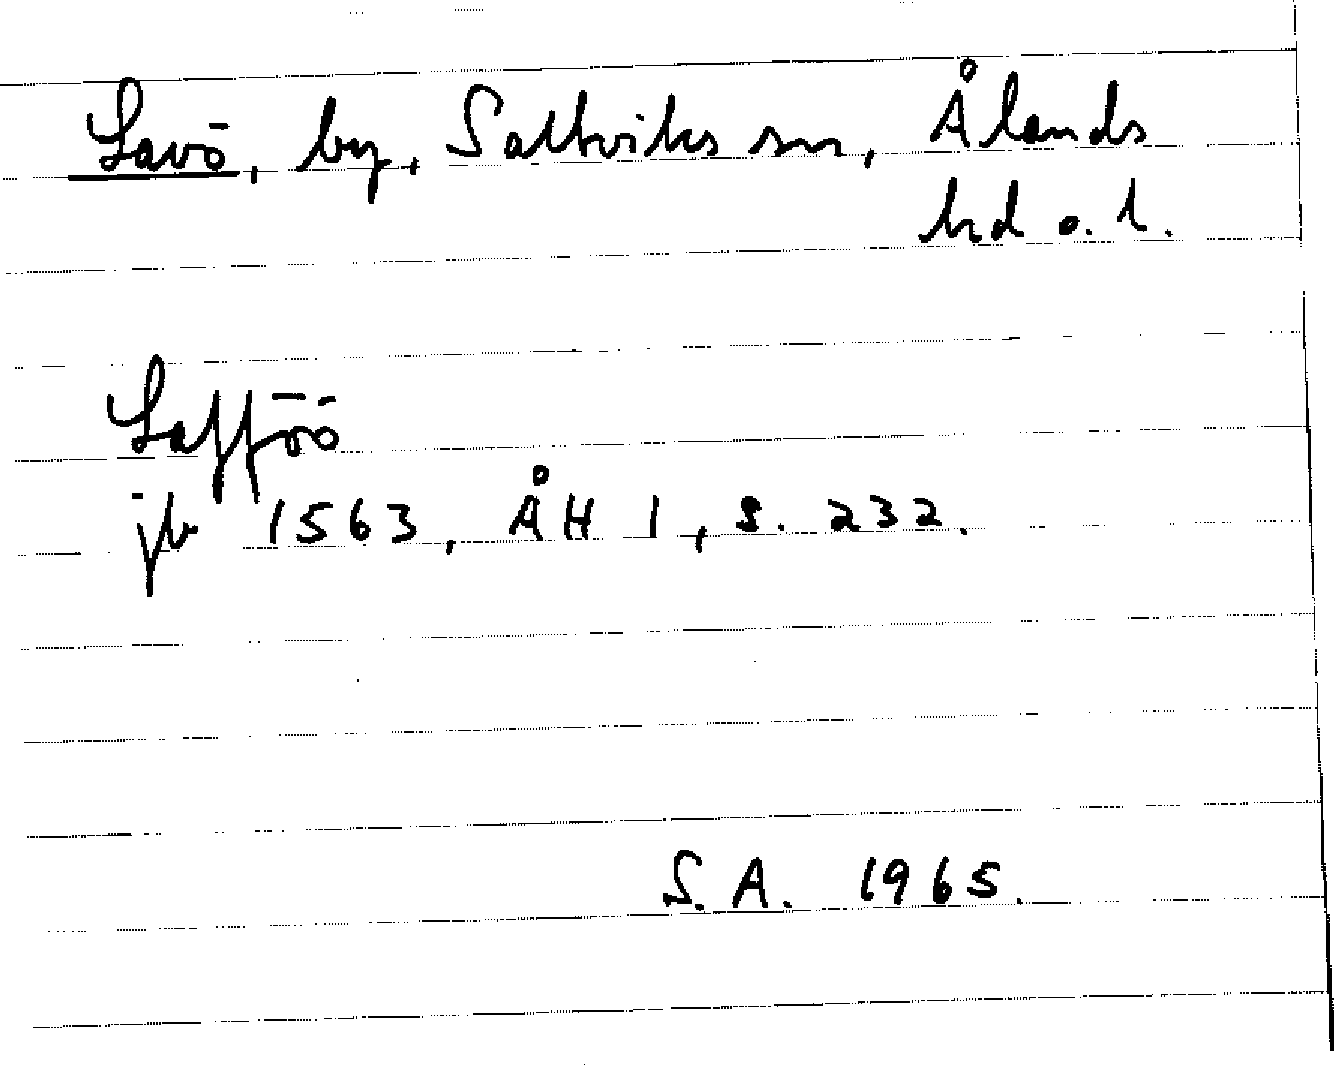 Lavö, by, Saltviks sn, Ålands
hd o. l.
Lafföö
jb 1563, ÅH 1, s. 232.
S.A. 1965.